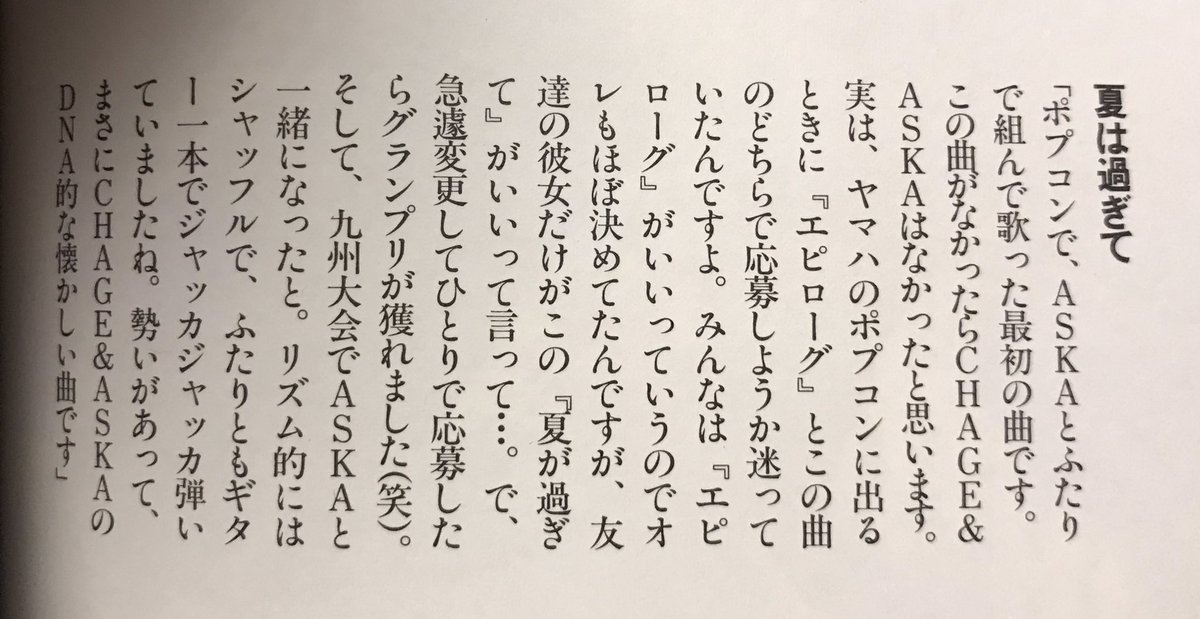 夏は過ぎて
「ポプコンで、ASKAとふたり
で組んで歌った最初の曲です。
この曲がなかったらCHAGE&
ASKAはなかったと思います。
実は、ヤマハのポプコンに出る
ときに『エピローグ』とこの曲
のどちらで応募しようか迷って
いたんですよ。みんなは『エピ
ローグ』がいいっていうのでオ
レもほぼ決めてたんですが、友
達の彼女だけがこの『夏が過ぎ
て』がいいって言って…。で、
急遽変更してひとりで応募した
らグランプリが獲れました(笑)。
そして、九州大会でASKAと
一緒になったと。リズム的には
シャッフルで、ふたりともギタ
ー一本でジャッカジャッカ弾い
ていましたね。勢いがあって、
まさにCHAGE&ASKAの
DNA的な懐かしい曲です」